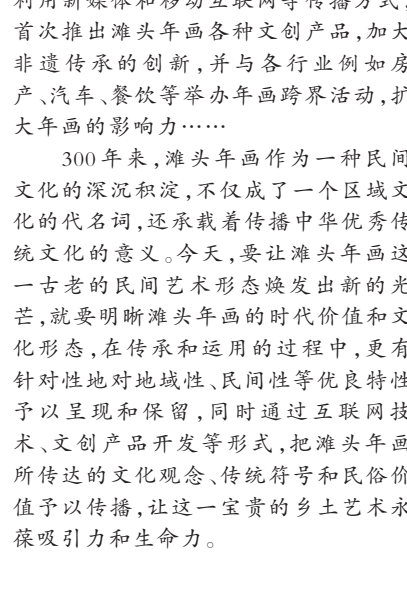 利用新媒体和移动互联网等传播方式，
首次推出滩头年画各种文创产品，加大
非遗传承的创新，并与各行业例如房
产、汽车、餐饮等举办年画跨界活动，扩
大年画的影响力……
300 年来，滩头年画作为一种民间
文化的深沉积淀，不仅成了一个区域文
化的代名词，还承载着传播中华优秀传
统文化的意义。今天，要让滩头年画这
一古老的民间艺术形态焕发出新的光
芒，就要明晰滩头年画的时代价值和文
化形态，在传承和运用的过程中，更有
针对性地对地域性、民间性等优良特性
予以呈现和保留，同时通过互联网技
术、文创产品开发等形式，把滩头年画
所传达的文化观念、传统符号和民俗价
值予以传播，让这一宝贵的乡土艺术永
葆吸引力和生命力。